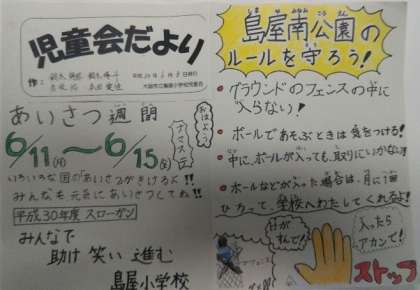 児童会だより
作：
平成30年6月8日発行
大阪市立島屋小学校児童会
あいさつ週間
おはよう
ナマステ
6/11(月)～6/15(金)
いろいろな国の「あいさつ」がきけるよ!!
みんなも元気にあいさつしてね!!
平成30年度 スローガン
みんなで
助け 笑い 進む
島屋小学校
島屋南公園の
ルールを守ろう!
・グラウンドのフェンスの中に
入らない!
・ボールであそぶときは気をつける!
・中に、ボールが入っても、取りにいかない!
・ボールなどが入った場合は、月に1回
ひろって、学校へわたしてくれるよ!
入ったら
アカンで!
ストップ